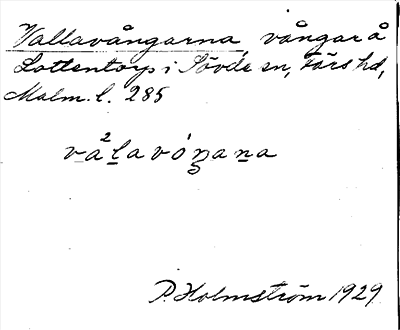 Vallavångarna, vångar å
Lottentorp i Sövde sn, Färs hd,
Malm. l. 285
va²lavóŋana
P. Holmström 1929